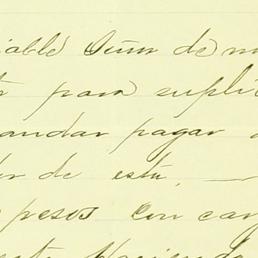 iable Señor de m
para supli
andar pagar
de esta. —
pesos con car
esta Hacienda